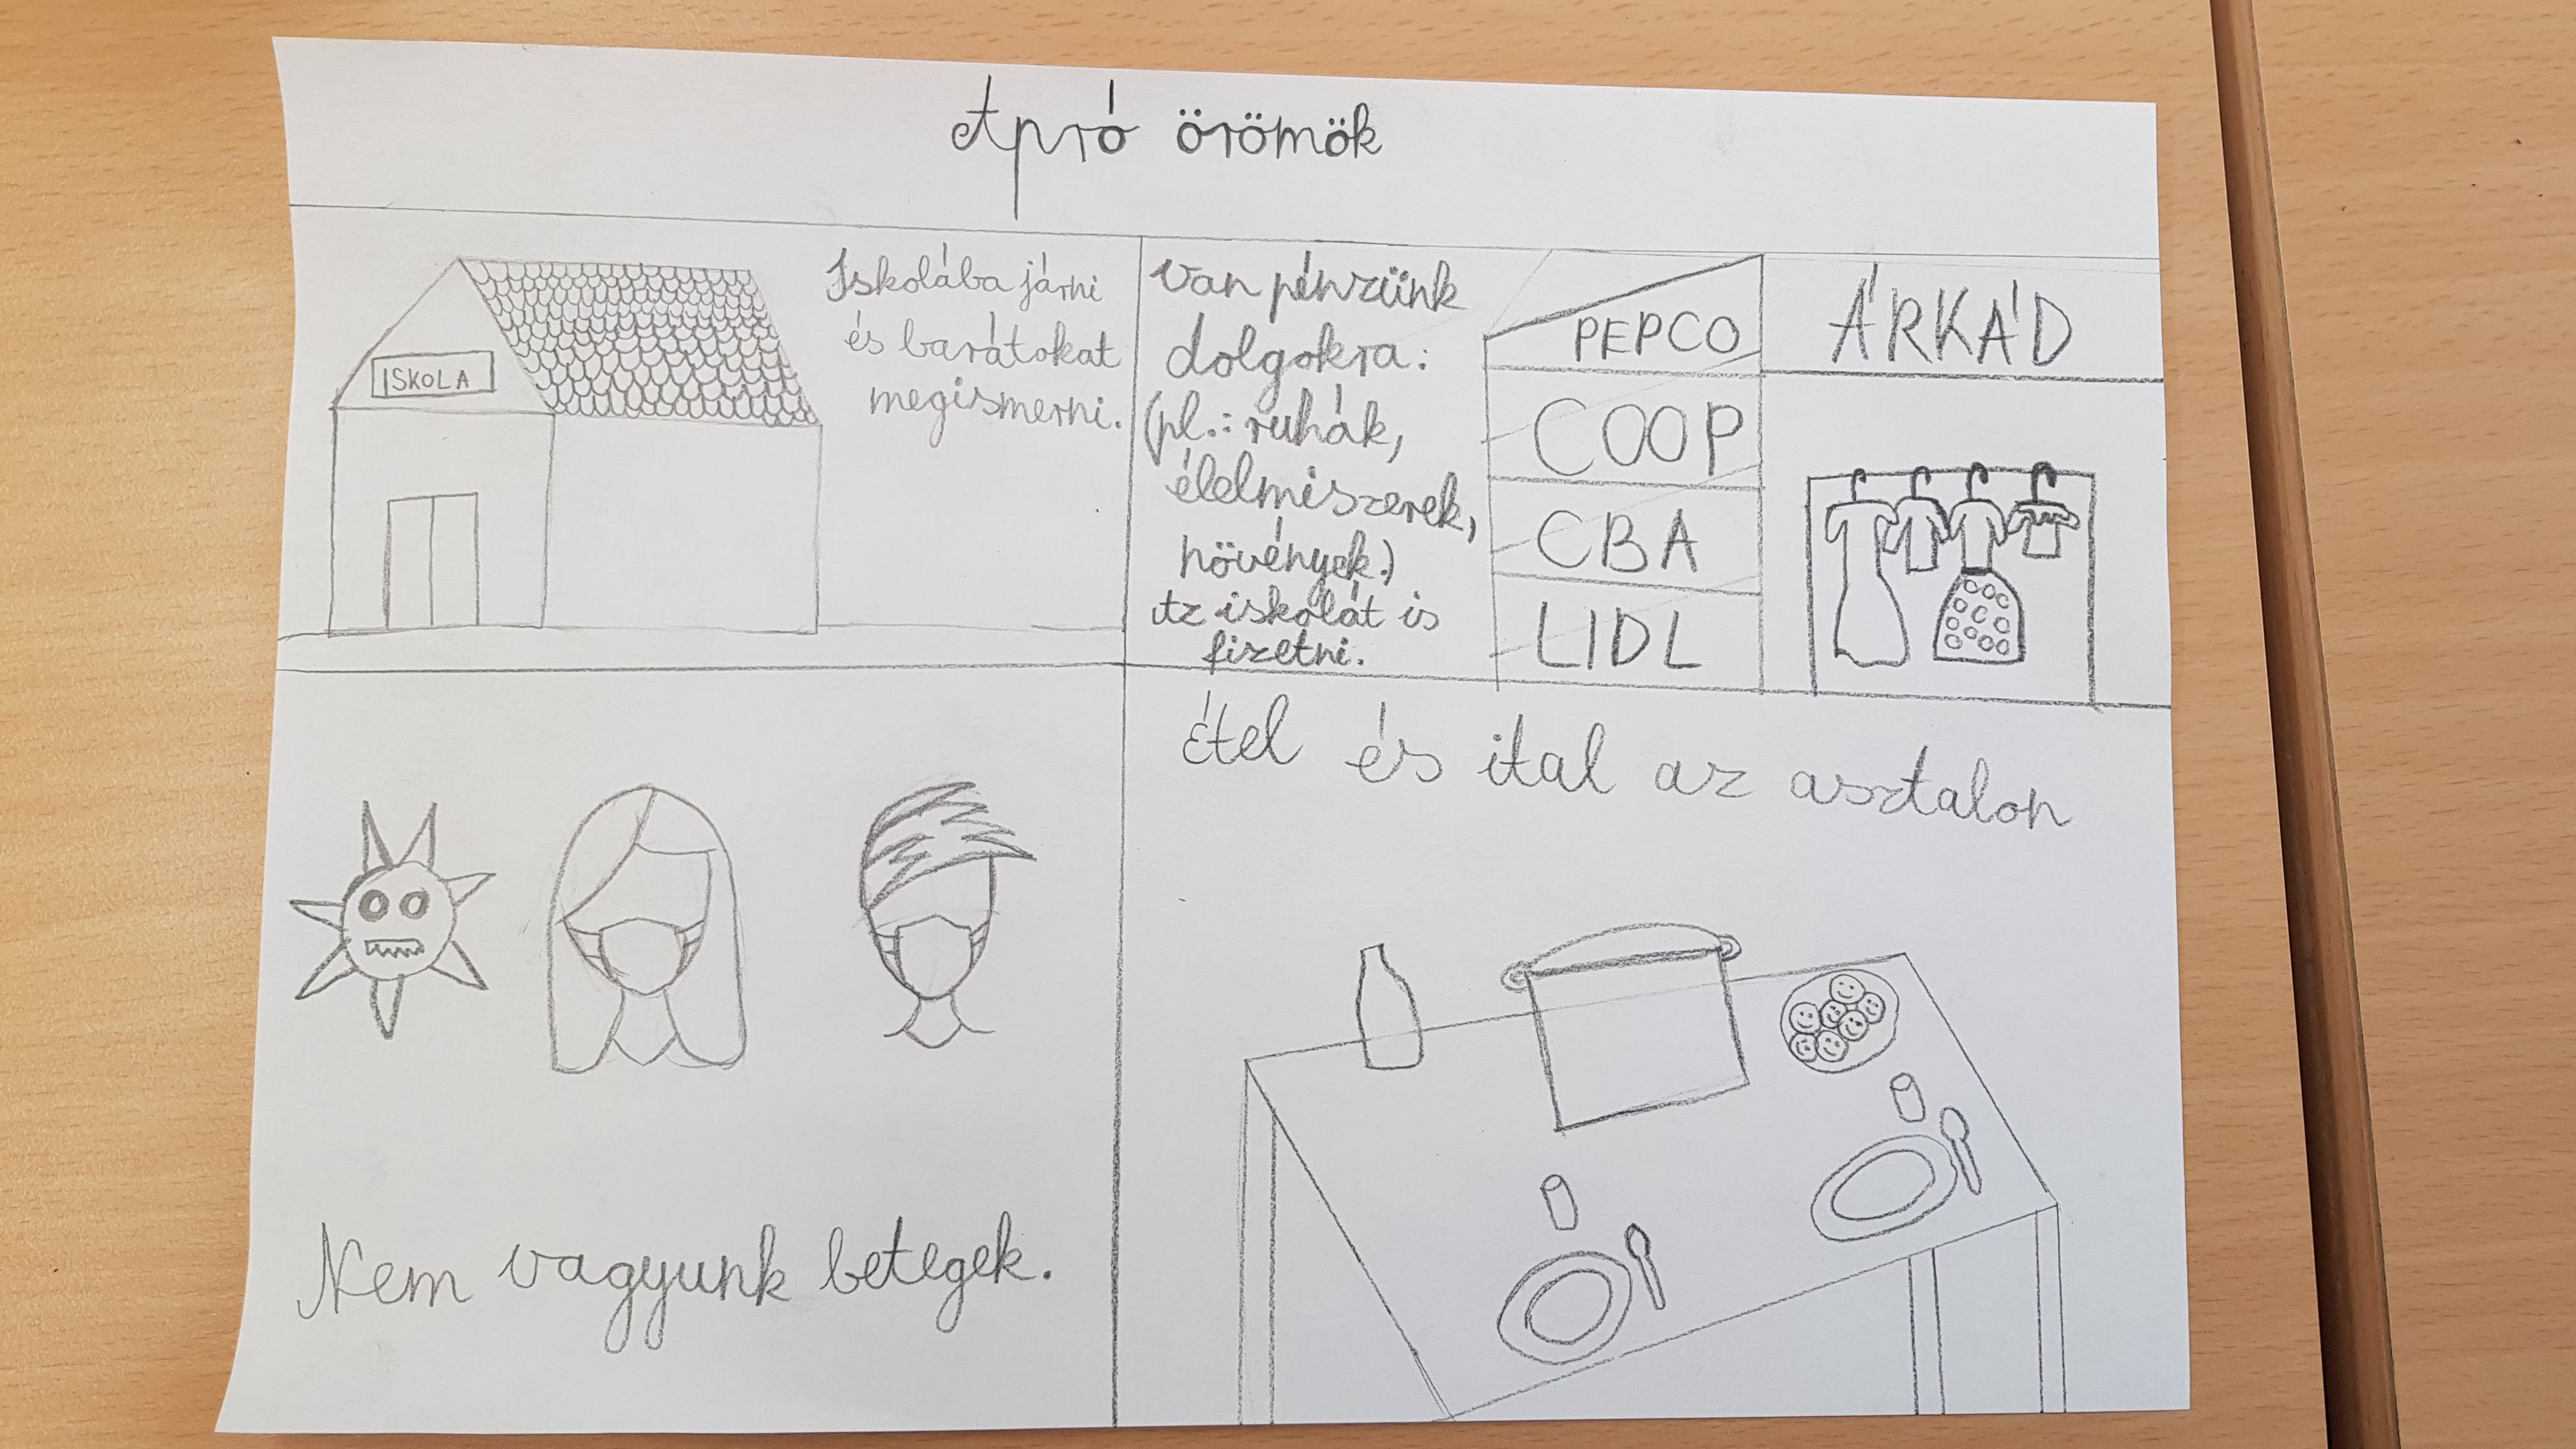 Apró örömök
ISKOLA
Iskolába járni
és barátokat
megismerni.
Van pénzünk
dolgokra:
(pl.: ruhák,
élelmiszerek,
növények.)
Az iskolát is
fizetni.
PEPCO
COOP
CBA
LIDL
ÁRKÁD
Nem vagyunk betegek.
étel és ital az asztalon